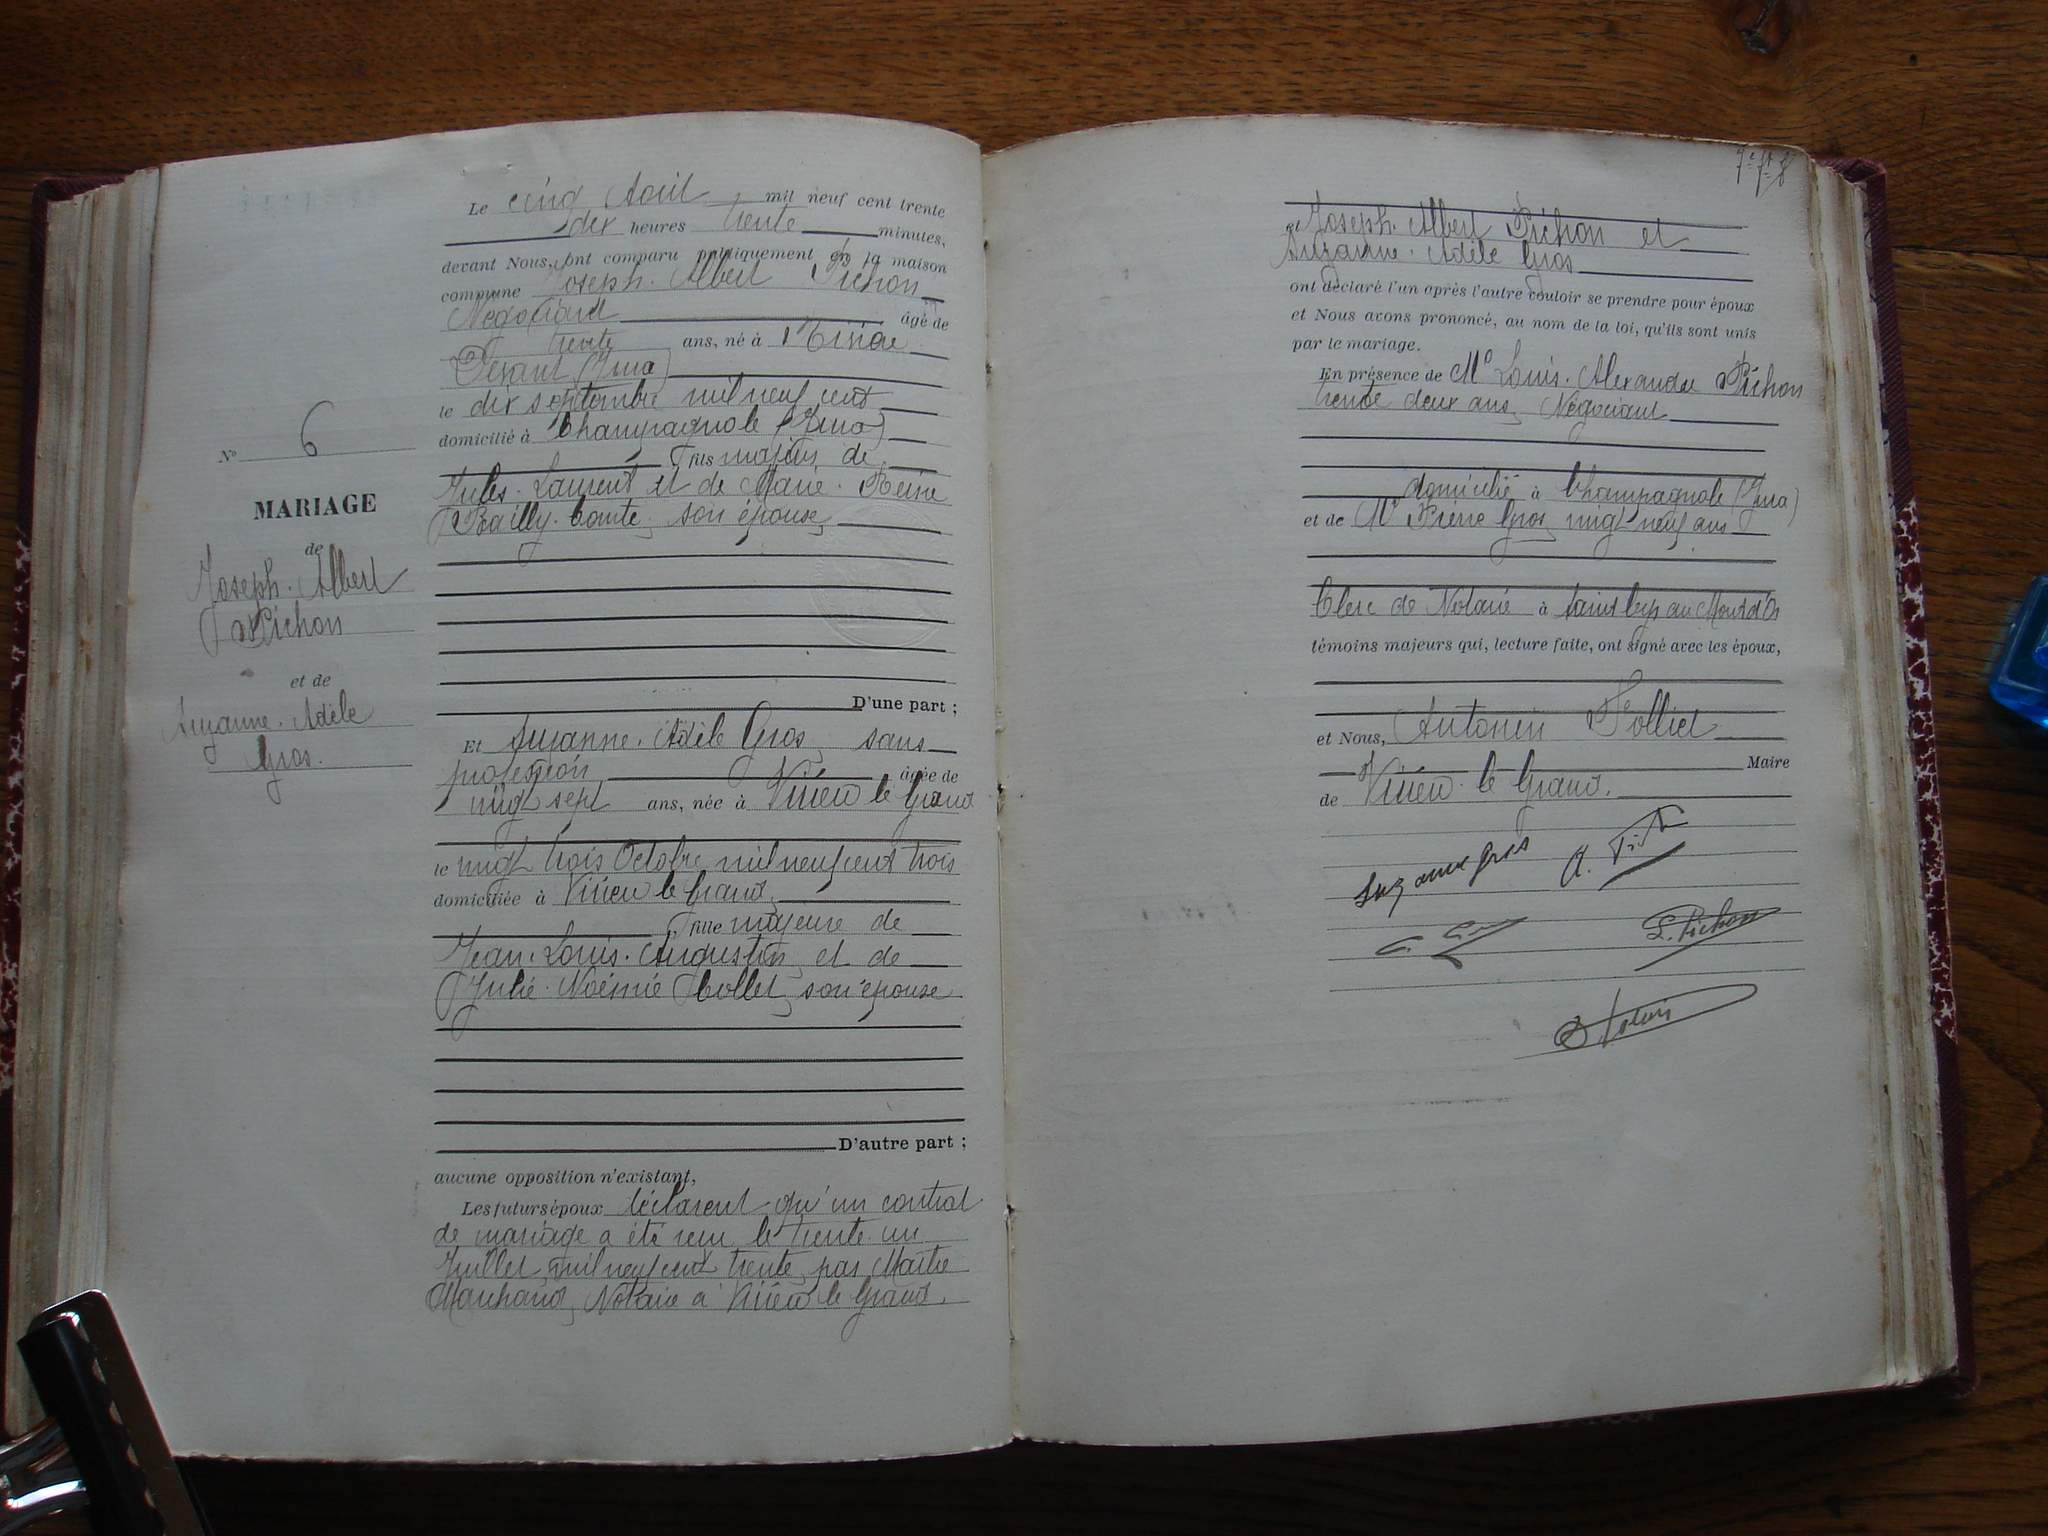 Le cinq Août mil neuf cent trente
dix heures trente minutes,
devant Nous, ont comparu publiquement en la maison
commune Joseph. Albert Pichon
Négociant âgé de
trente ans, né à
(Jura)
le dix septembre mil neuf cent
domicilié à Champagnole (Jura)
fils majeur de
Jules. Laurent et de Marie. Reine
Bailly. Comte, son épouse,
No 6
MARIAGE
de
Joseph. Albert
Pichon
et de
Suzanne. Adèle
Gros.
D'une part ;
Et Suzanne. Adèle Gros, sans
profession, âgée de
vingt sept ans, née à Virieu le Grand
le vingt trois Octobre mil neuf cent trois
domiciliée à Virieu le Grand,
fille majeure de
Jean. Louis. Augustin, et de
Julie. Noémie Collet, son épouse
D'autre part ;
aucune opposition n'existant,
Les futurs époux déclarent qu'un contrat
de mariage a été reçu le trente un
Juillet, mil neuf cent trente, par Maître
Marchand, Notaire à Virieu le Grand.
et Joseph. Albert Pichon et
Suzanne. Adèle Gros
ont déclaré l'un après l'autre vouloir se prendre pour époux
et Nous avons prononcé, au nom de la loi, qu'ils sont unis
par le mariage.
En présence de Mr Louis. Alexandre Pichon
trente deux ans, Négociant
domicilié à Champagnole (Jura)
et de Mr Pierre Gros, vingt neuf ans
Clerc de Notaire à Saint Cyr au Mont d'Or
témoins majeurs qui, lecture faite, ont signé avec les époux,
et Nous, Antonin
Maire
de Virieu. le Grand.
Suzanne Gros
L. Pichon